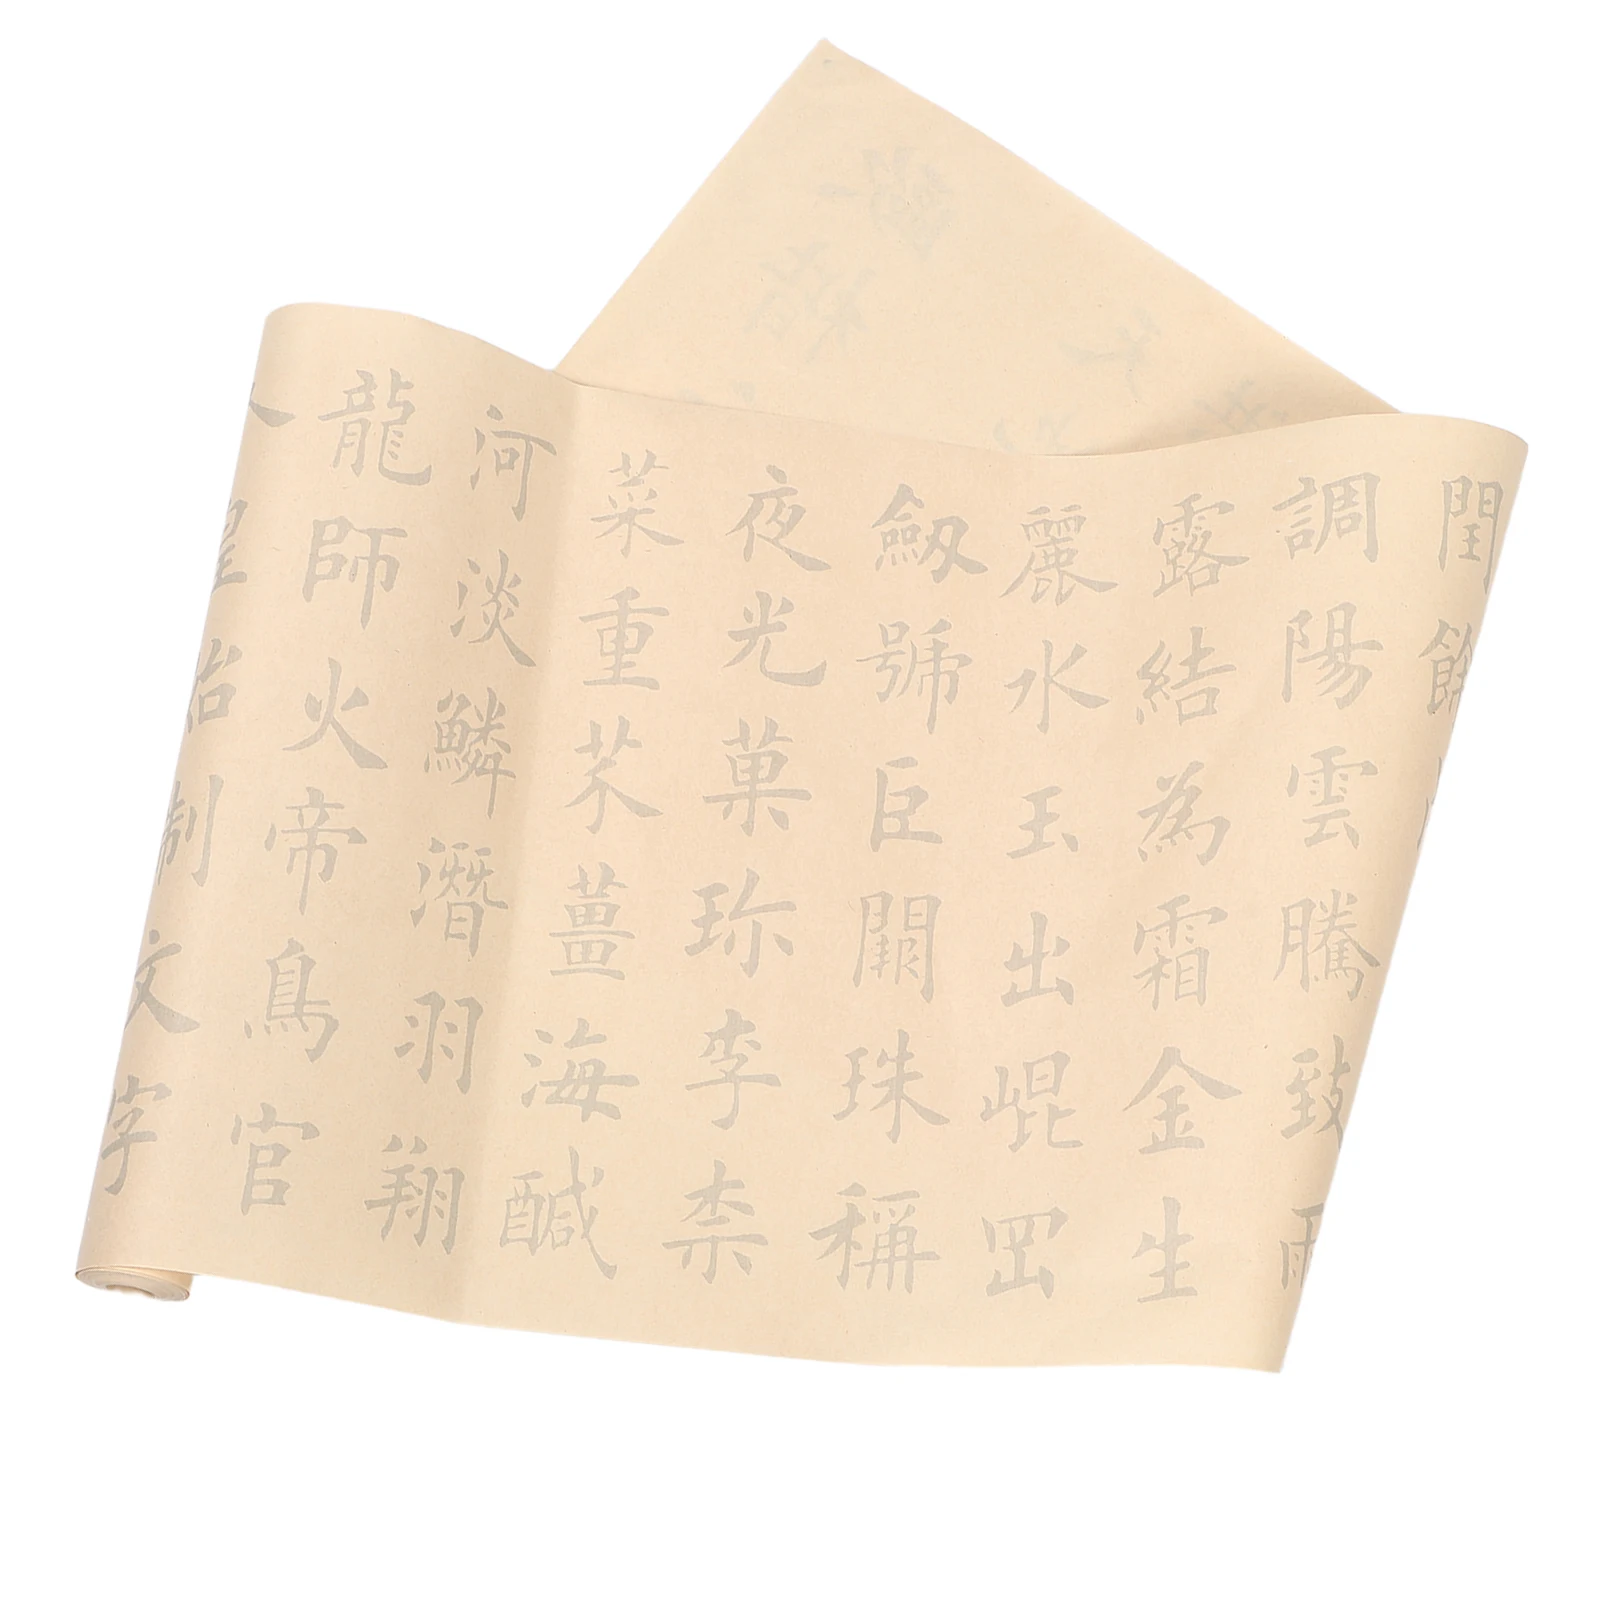 閏餘
調陽雲騰致雨
露結為霜金生
麗水玉出崐岡
劔號巨闕珠稱
夜光菓珎李柰
菜重芥薑海醎
河淡鱗潛羽翔
龍師火帝鳥官
人皇始制文字